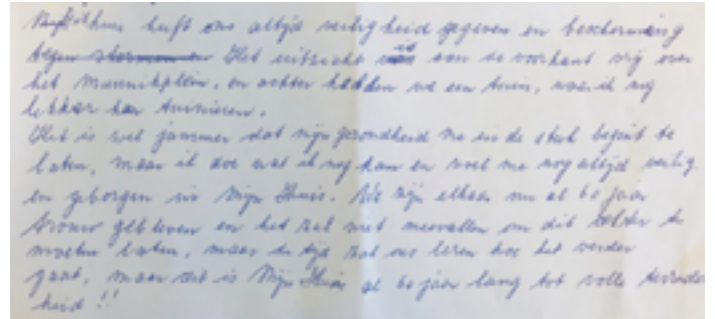 Dit huis heeft ons altijd veiligheid gegeven en bescherming
tegen stormen en Het uitzicht is aan de voorkant vrij over
het Munnikplein, en achter hadden we een tuin, waar ik nog
lekker kan tuinieren.
Het is wel jammer dat mijn gezondheid me in de steek begint te
laten, maar ik doe wat ik nog kan en voel me nog altijd veilig
en geborgen in Mijn Huis. We zijn elkaar nu al 60 jaar
trouw gebleven en het zal niet meevallen om dit achter te
moeten laten, maar de tijd zal ons leren hoe het verder
gaat, maar dit is Mijn Huis al 60 jaar lang tot volle tevreden
heid !!